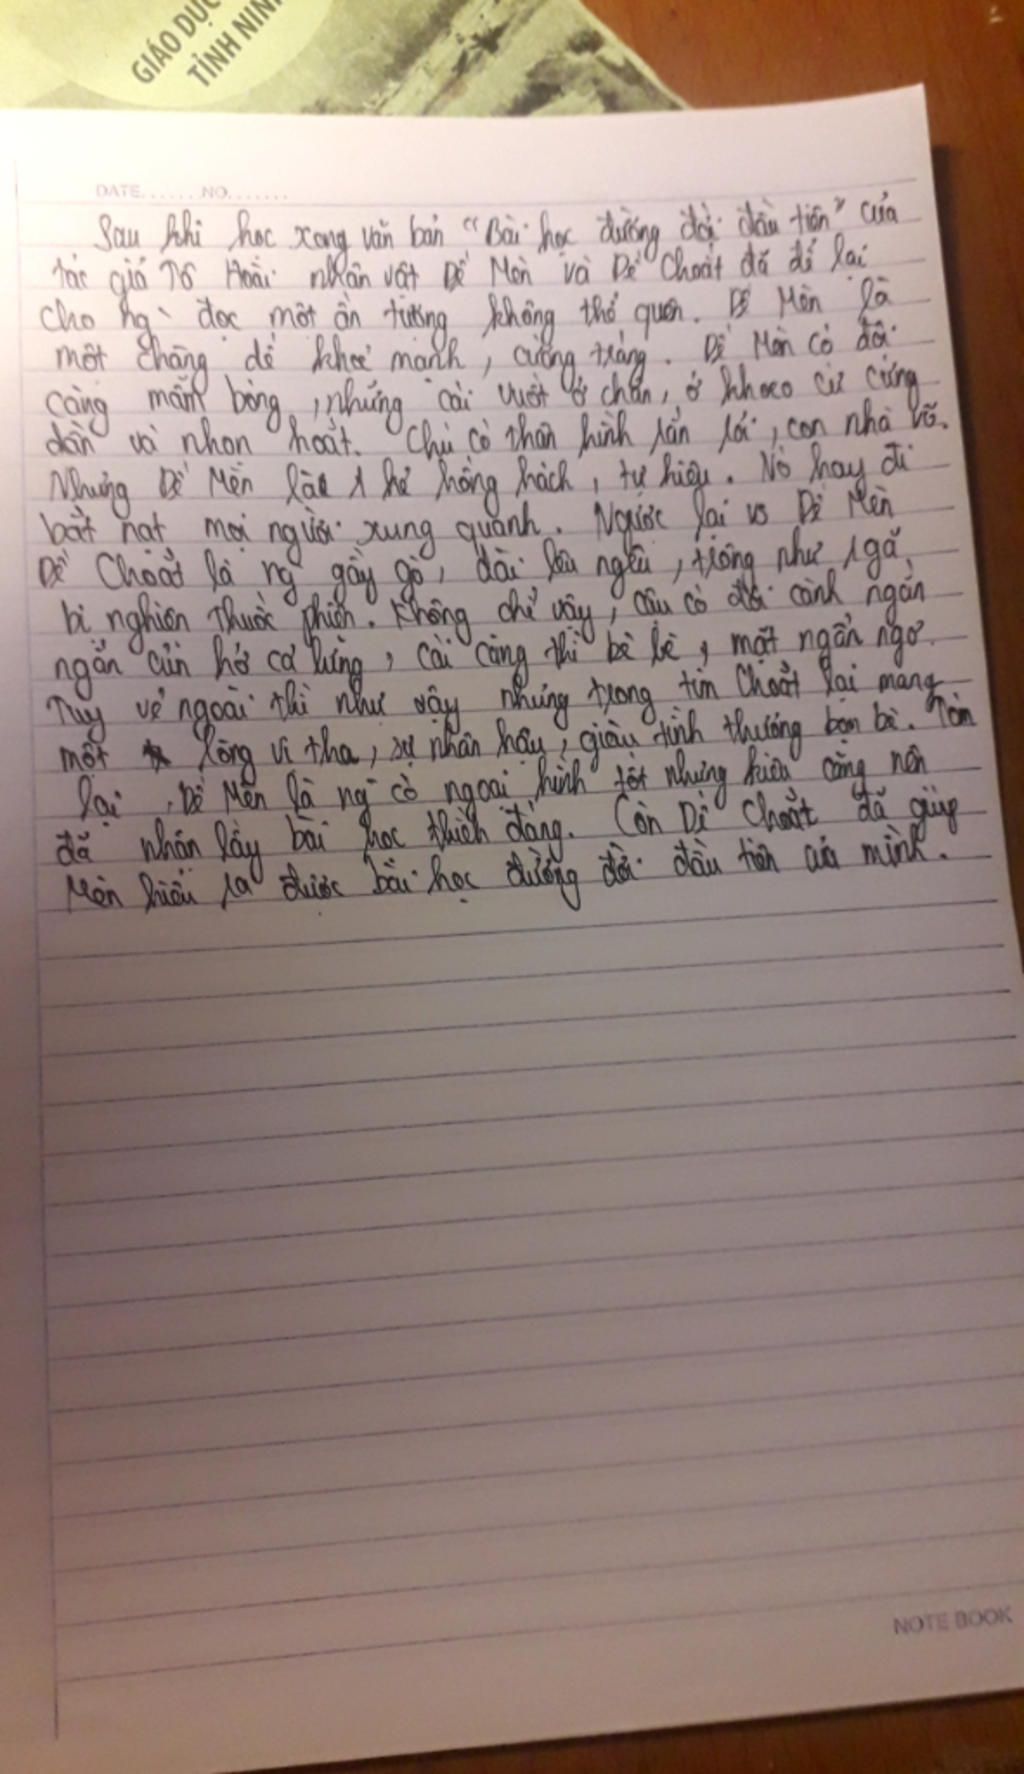 GIÁO DỤC
TỈNH NINH
DATE...... NO.......
Sau khi học xong văn bản "Bài học đường đời đầu tiên" của
tác giả Tô Hoài nhân vật Dế Mèn và Dế Choắt đã để lại
cho ng` đọc một ấn tượng không thể quên. Dế Mèn là
một chàng dế khoẻ mạnh, cường tráng. Dế Mèn có đôi
càng mẫm bóng, những cái vuốt ở chân, ở khoeo cứ cứng
dần và nhọn hoắt. Chú có thân hình rắn rỏi, con nhà võ.
Nhưng Dế Mèn là 1 kẻ hống hách, tự kiêu. Nó hay đi
bắt nạt mọi người xung quanh. Ngược lại vs Dế Mèn
Dế Choắt là ng gầy gò, dài lêu nghêu, trông như 1 gã
bị nghiện thuốc phiện. Không chỉ vậy, cậu có đôi cánh ngắn
ngắn củn hở cả lưng, cái càng thì bè bè, mặt ngẩn ngơ.
Tuy vẻ ngoài thì như vậy nhưng trong tim Choắt lại mang
một lòng vị tha, sự nhân hậu, giàu tình thương bạn bè. Tóm
lại, Dế Mèn là ng có ngoại hình tốt nhưng kiêu căng nên
đã nhận lấy bài học thích đáng. Còn Dế Choắt đã giúp
Mèn hiểu ra được bài học đường đời đầu tiên của mình.
NOTE BOOK